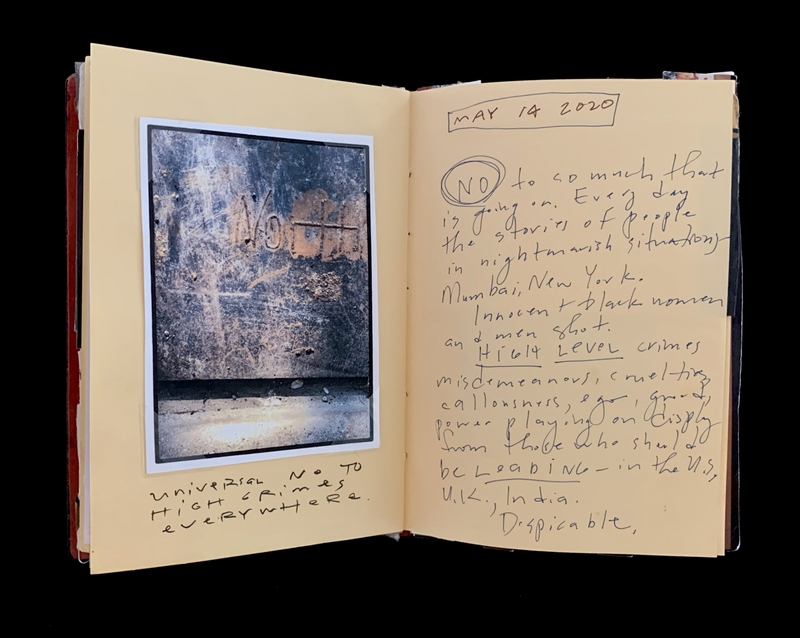 No H
universal NO TO
HIGH CRIMES
EVERYWHERE.
MAY 14 2020
NO to so much that
is going on. Every day
the stories of people
in nightmarish situations
Mumbai, New York.
Innocent black women
and men shot.
HIGH LEVEL crimes
misdemeanors, cruelties,
callousness, ego, greed,
power playing on display
from those who should
be LEADING – in the U.S,
U.K., India.
Despicable.